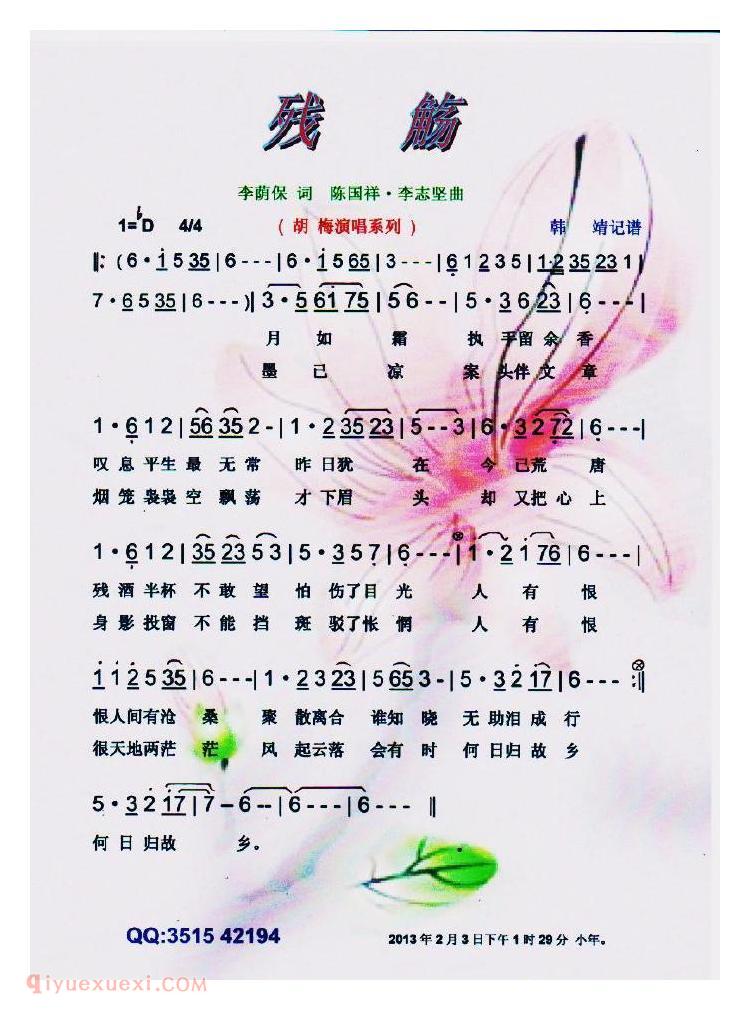 残 觞
李荫保 词 陈国祥·李志坚曲
1=♭D 4/4 (胡 梅演唱系列) 韩 靖记谱
‖: (6·i 5 35|6---|6·i 5 65|3---|6 1 2 3 5|1·2 35 23 1|
7·6 5 35|6---)|3·5 61 75|5 6--|5·3 6 23|6---|
月 如 霜 执 手留 余 香
墨 已 凉 案 头伴 文 章
1·6 1 2|56 35 2-|1·2 35 23|5--3|6·3 2 72|6---|
叹 息 平生 最 无 常 昨 日犹 在 今 已荒 唐
烟 笼 袅袅 空 飘 荡 才 下眉 头 却 又把 心 上
1·6 1 2|35 23 5 3|5·3 5 7|6---|1·2 1 76|6---|
残 酒 半杯 不 敢 望 怕 伤了目 光 人 有 恨
身 影 投窗 不 能 挡 斑 驳了怅 惘 人 有 恨
i i 2 5 35|6---|1·2 3 23|5 65 3-|5·3 2 17|6---:‖
恨人间有沧 桑 聚 散离合 谁知 晓 无 助泪 成 行
很天地两茫 茫 风 起云落 会有 时 何 日归 故 乡
5·3 2 17|7-6--|6---|6---‖
何 日 归故 乡。
QQ:3515 42194
2013年2月3日下午1时29分 小年。
qiyuexuexi.com®